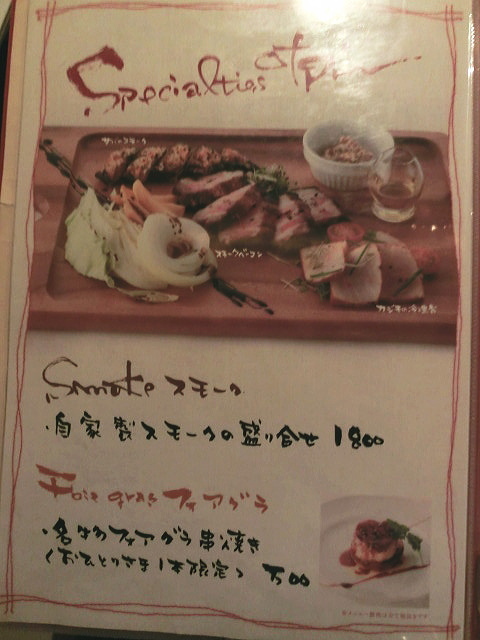 Specialties Item
スモークベーコン
カジキの冷燻製
Smoke スモーク
・自家製スモークの盛り合せ 1800
Foie gras フォアグラ
・名物フォアグラ串焼き
(おひとりさま1本限定) 700